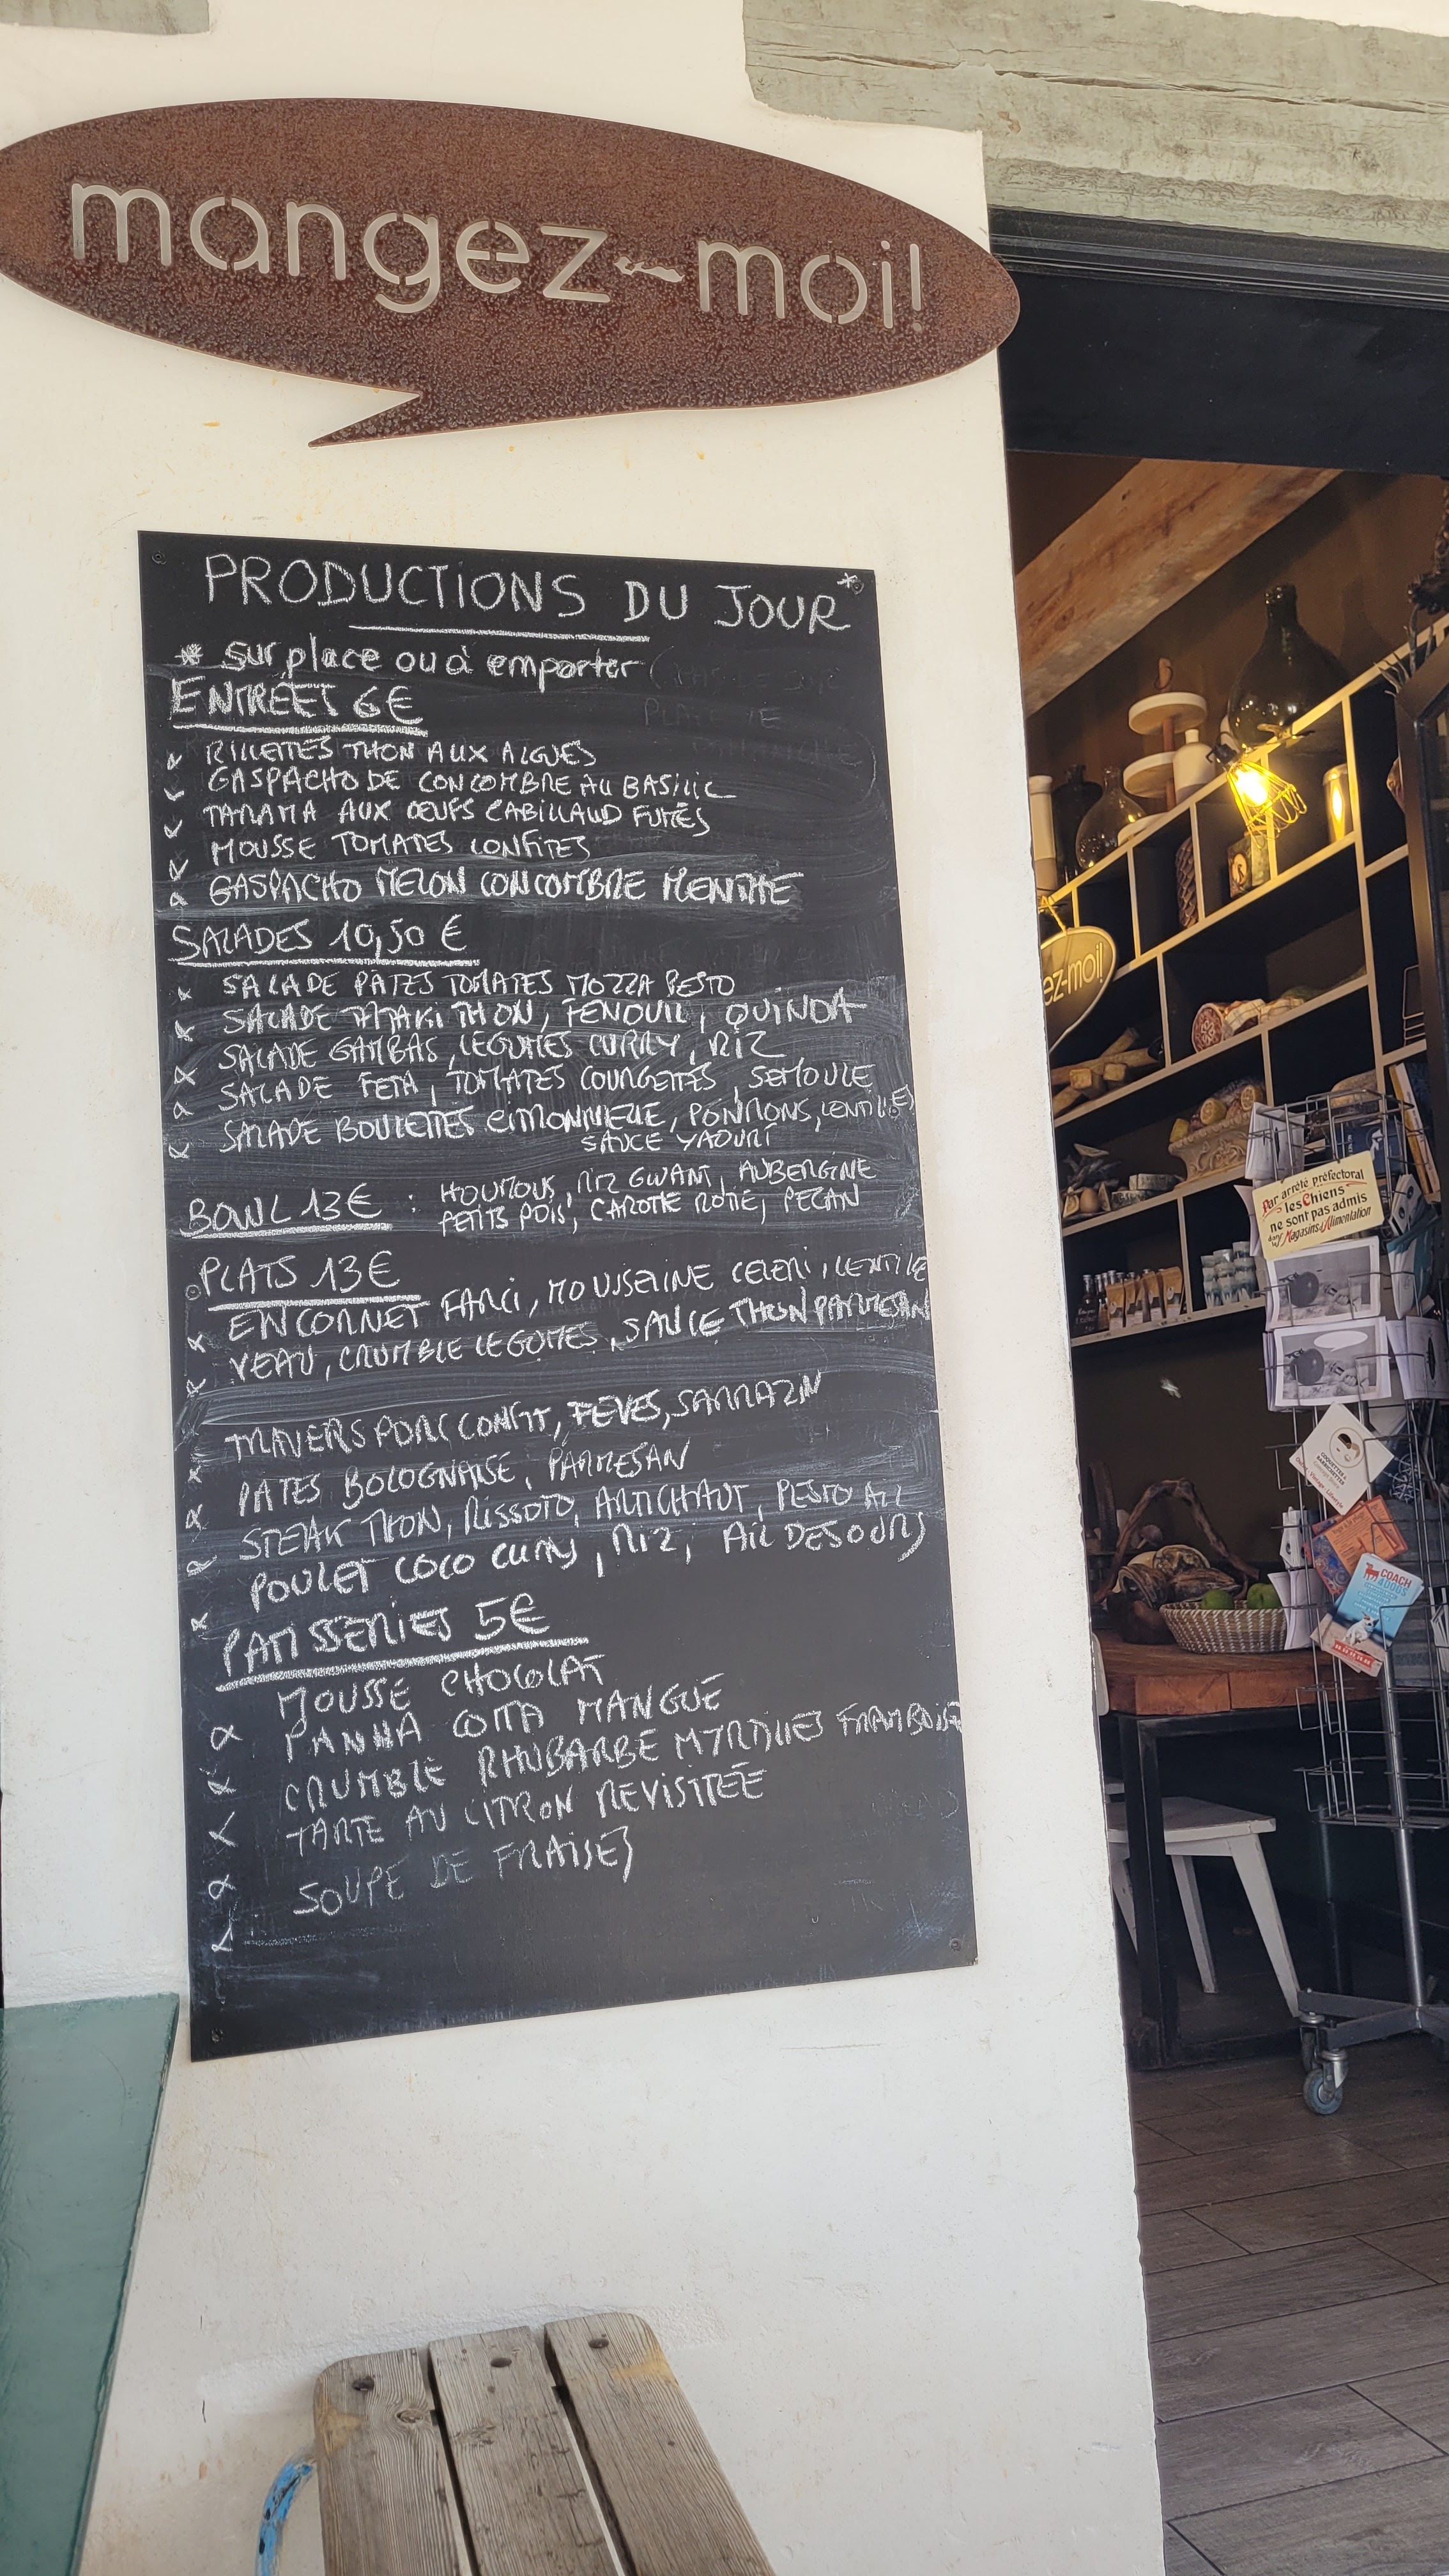 mangez-moi!
PRODUCTIONS DU JOUR *
* sur place ou à emporter
ENTRÉES 6€
RILLETTES THON AUX ALGUES
GASPACHO DE CONCOMBRE AU BASILIC
TARAMA AUX OEUFS CABILLAUD FUMÉS
MOUSSE TOMATES CONFITES
GASPACHO MELON CONCOMBRE MENTHE
SALADES 10,50 €
SALADE PÂTES TOMATES MOZZA PESTO
SALADE TATAKI THON, FENOUIL, QUINOA
SALADE GAMBAS, LEGUMES CURRY, RIZ
SALADE FETA, TOMATES COURGETTES, SEMOULE
SALADE BOULETTES POIVRONS, LENTILLES
SAUCE YAOURT
BOWL 13€ : HOUMOUS, RIZ GLUANT, AUBERGINE
PETITS POIS, CAROTTE ROTIE, PECAN
PLATS 13€
ENCORNET FARCI, MOUSSELINE CELERI, LENTILLE
VEAU, CRUMBLE LEGUMES, SAUCE THON PARMESAN
TRAVERS PORC CONFIT, FEVES, SARRAZIN
PATES BOLOGNAISE, PARMESAN
STEAK THON, RISSOTO, ARTICHAUT, PESTO AIL
POULET COCO CURRY, RIZ, AIL DES OURS
PATISSERIES 5€
MOUSSE CHOCOLAT
PANNA COTTA MANGUE
CRUMBLE RHUBARBE MYRTILLES FRAMBOISE
TARTE AU CITRON REVISITÉE
SOUPE DE FRAISES
ez-moi!
Par arrêté préfectoral
les Chiens
ne sont pas admis
dans Magasins d'Alimentation
COACH